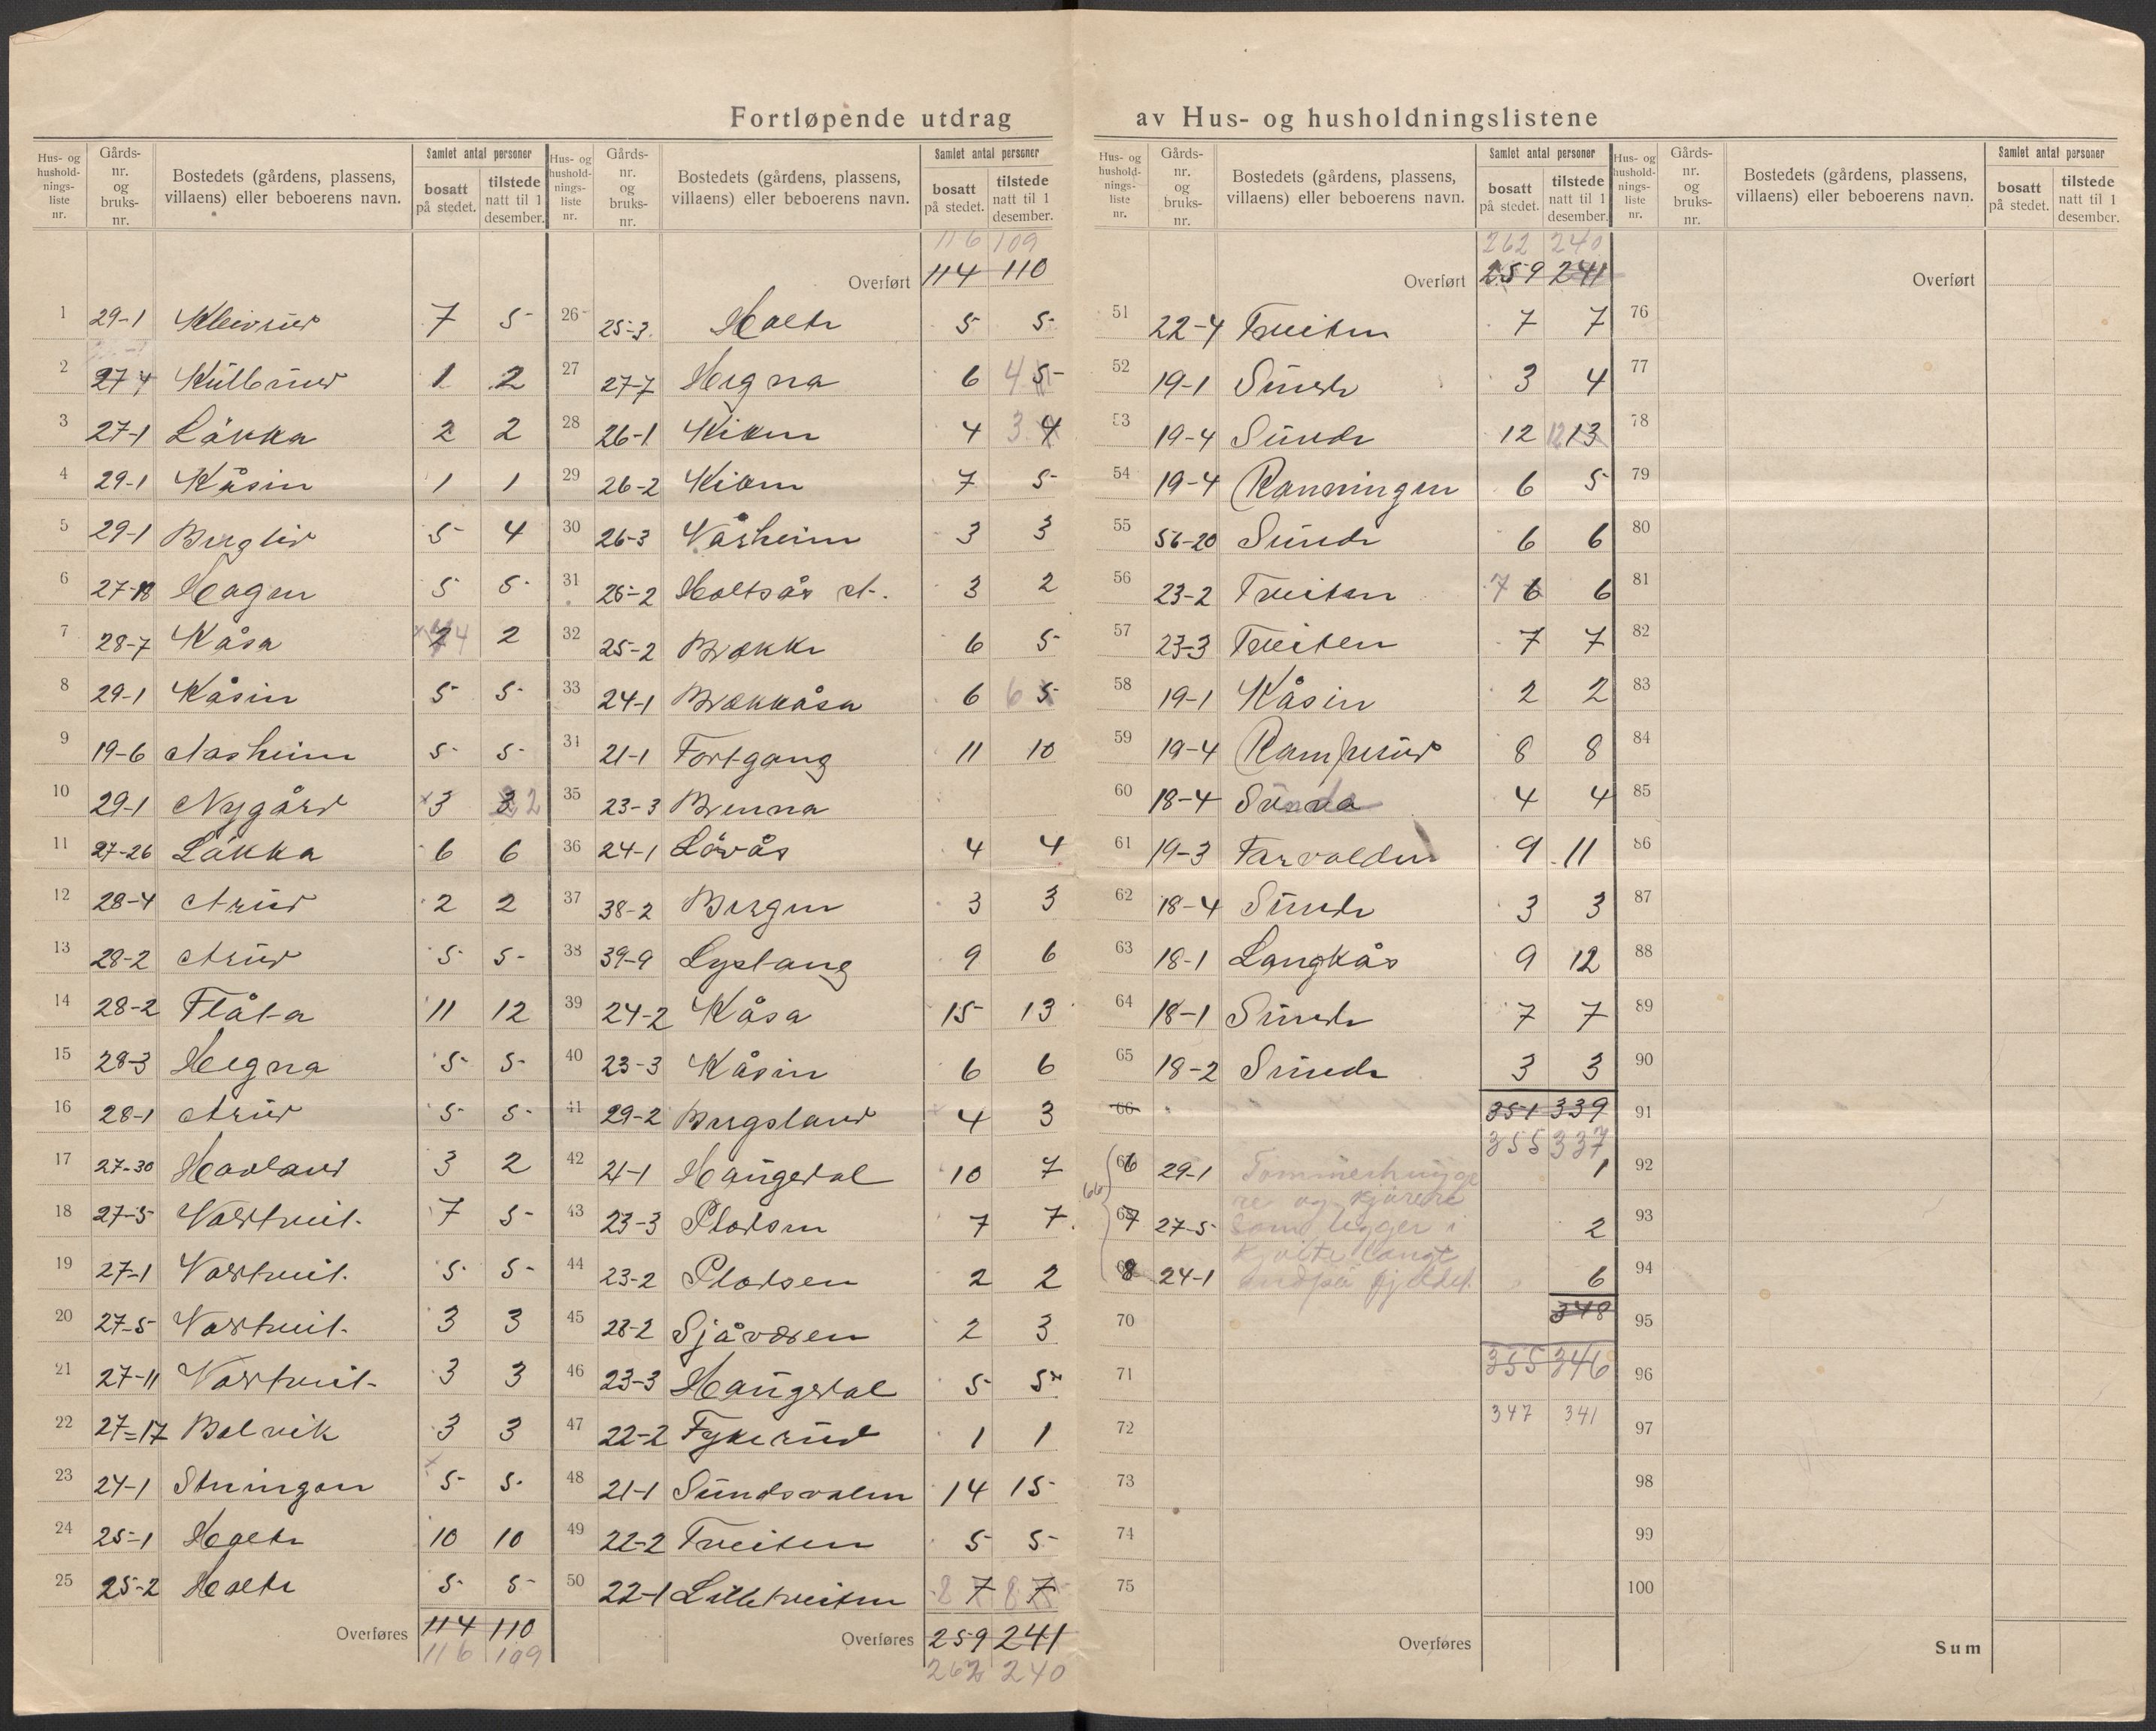 Fortløpende utdrag av Hus- og husholdningslistene
Hus- og hushold-nings-liste nr. | Gårds-nr. og bruks-nr. | Bostedets (gårdens, plassens, villaens) eller beboerens navn. | Samlet antal personer | bosatt på stedet. | tilstede natt til 1 desember.
1 29-1 Kleivrud 7 5
2 27 4 Kullerud 1 2
3 27-1 Låkka 2 2
4 29-1 Kåsin 1 1
5 29-1 Berglid 5 4
6 27-18 Hagen 5 5
7 28-7 Kåsa 2 4 2
8 29-1 Kåsin 5 5
9 19-6 Aasheim 5 5
10 29-1 Nygård 3 3 2
11 27-26 Låkka 6 6
12 28-4 Arud 2 2
13 28-2 Arud 5 5
14 28-2 Flåta 11 12
15 28-3 Hegna 5 5
16 28-1 Arud 5 5
17 27-30 Havland 3 2
18 27-5 Vastveit 7 5
19 27-1 Vastveit 5 5
20 27-5 Vastveit 3 3
21 27-11 Vastveit 3 3
22 27-17 Bolvik 3 3
23 24-1 Stuningen 5 5
24 25-1 Holte 10 10
25 25-2 Holte 5 5
Overføres 114 110
116 109
Hus- og hushold-nings-liste nr. | Gårds-nr. og bruks-nr. | Bostedets (gårdens, plassens, villaens) eller beboerens navn. | Samlet antal personer | bosatt på stedet. | tilstede natt til 1 desember.
116 109
Overført 114 110
26 25-3 Holte 5 5
27 27-7 Hegna 6 4 5
28 26-1 Kiken 4 3 4
29 26-2 Kiken 7 5
30 26-3 Våsheim 3 3
31 25-2 Holtsås st. 3 2
32 25-2 Brekke 6 5
33 24-1 Brekkåsa 6 6 5
34 21-1 Fortgang 11 10
35 23-3 Brenna
36 24-1 Lövås 4 4
37 38-2 Bergen 3 3
38 39-9 Lystang 9 6
39 24-2 Kåsa 15 13
40 23-3 Kåsin 6 6
41 29-2 Bergsland 4 3
42 21-1 Haugedal 10 7
43 23-3 Plassen 7 7
44 23-2 Plassen 2 2
45 23-2 Sjåvåsen 2 3
46 23-3 Haugedal 5 5
47 22-2 Fykerud 1 1
48 21-1 Sundsvalen 14 15
49 22-2 Tveiten 5 5
50 22-1 Lilletveiten 8 7 8 7
Overføres 259 241
262 240
Hus- og hushold-nings-liste nr. | Gårds-nr. og bruks-nr. | Bostedets (gårdens, plassens, villaens) eller beboerens navn. | Samlet antal personer | bosatt på stedet. | tilstede natt til 1 desember.
262 240
Overført 259 241
51 22-4 Tveiten 7 7
52 19-1 Sunde 3 4
53 19-4 Sunde 12 12 13
54 19-4 Rønningen 6 5
55 56-20 Sunde 6 6
56 23-2 Tveiten 7 6 6
57 23-3 Tveiten 7 7
58 19-1 Kåsin 2 2
59 19-4 Ramperud 8 8
60 18-4 4 4
61 19-3 Farvolden 9 11
62 18-4 Sunde 3 3
63 18-1 Langkås 9 12
64 18-1 Sunde 7 7
65 18-2 Sunde 3 3
66 351 339
355 337
66 29-1 Tömmerhugge 1
re og kjörere
67 27-5 som ligger i 2
68 24-1 langt 6
indpå fjeldet.
70 348
71 355 346
72 347 341
73
74
75
Overføres
Hus- og hushold-nings-liste nr. | Gårds-nr. og bruks-nr. | Bostedets (gårdens, plassens, villaens) eller beboerens navn. | Samlet antal personer | bosatt på stedet. | tilstede natt til 1 desember.
Overført
76
77
78
79
80
81
82
83
84
85
86
87
88
89
90
91
92
93
94
95
96
97
98
99
100
Sum